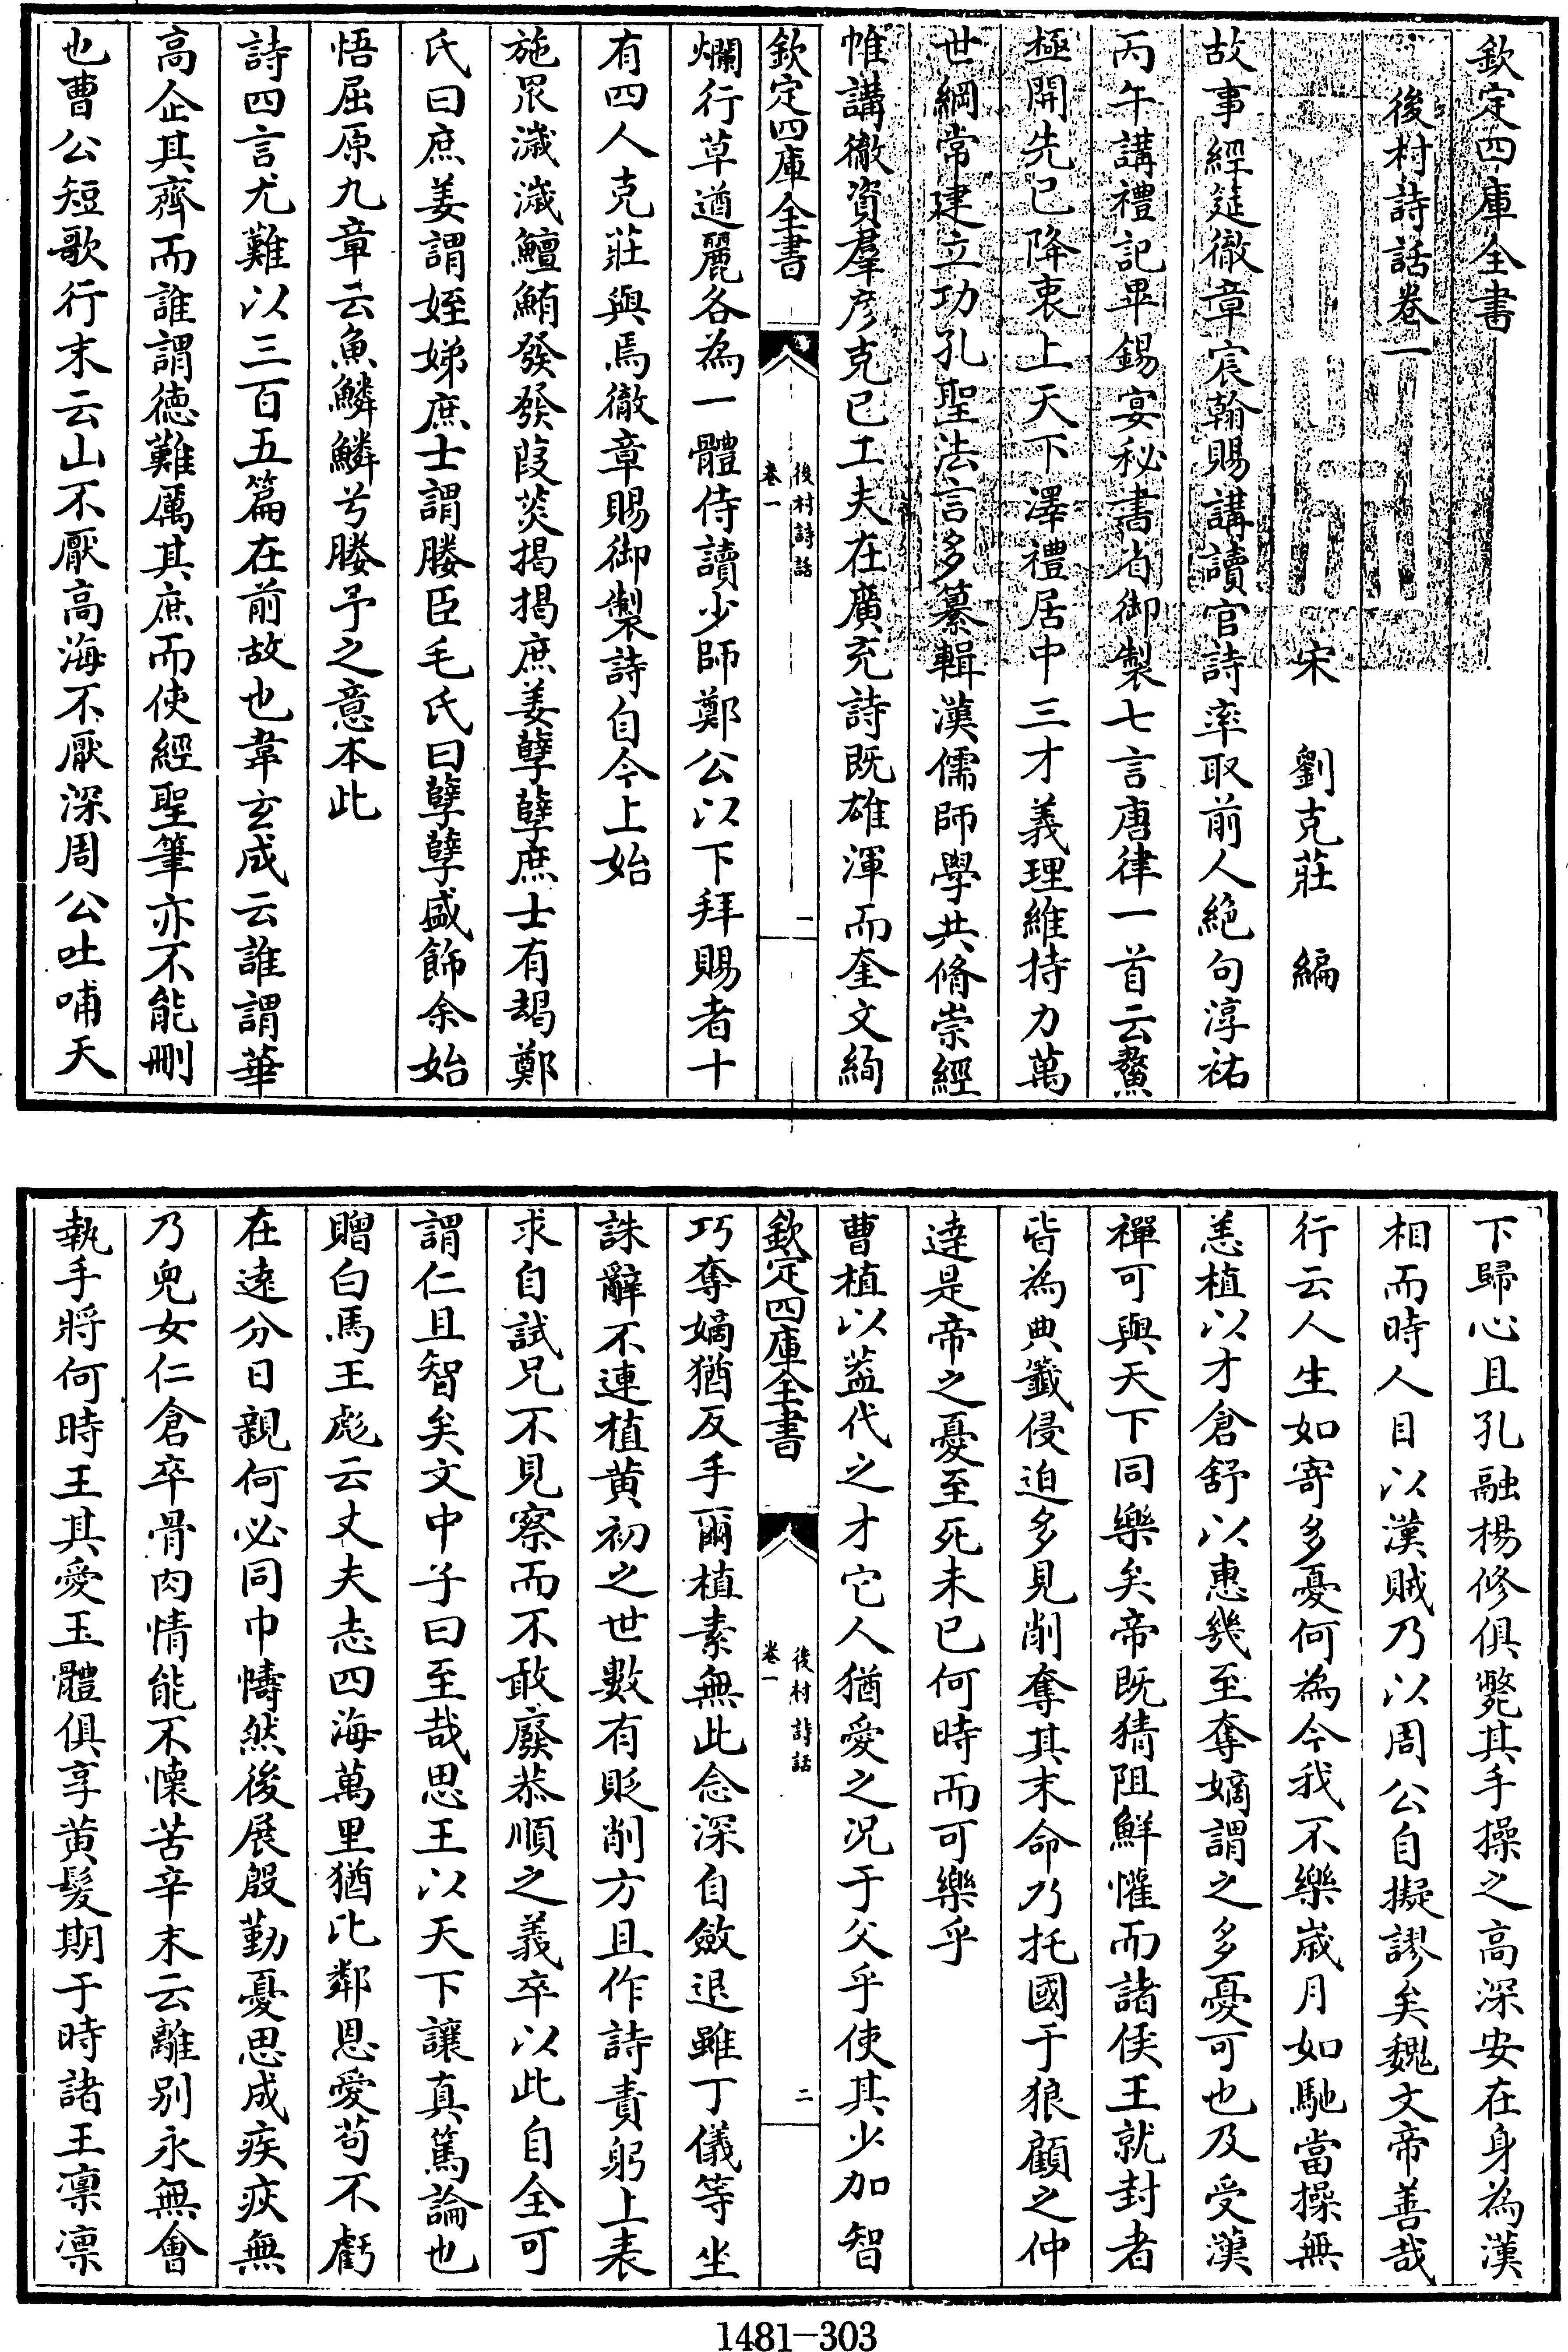 欽定四庫全書
後村詩話卷一
宋 劉克莊 編
故事經筵徹章宸翰賜講讀官詩率取前人絶句淳祐
丙午講禮記畢錫宴秘書省御製七言唐律一首云鰲
極開先已降衷上天下澤禮居中三才義理維持力萬
世綱常建立功孔聖法言多纂輯漢儒師學共脩崇經
帷講徹資羣彦克已工夫在廣充詩既雄渾而奎文絢
欽定四庫全書
後村詩話
卷一
一
爛行草遒麗各為一體侍讀少師鄭公以下拜賜者十
有四人克莊與焉徹章賜御製詩自今上始
施罛濊濊鱣鮪發發葭菼揭揭庶姜孽孽庶士有朅鄭
氏曰庶姜謂姪娣庶士謂媵臣毛氏曰孽孽盛飾余始
悟屈原九章云魚鱗鱗兮媵予之意本此
詩四言尤難以三百五篇在前故也韋玄成云誰謂華
高企其齊而誰謂德難厲其庶而使經聖筆亦不能刪
也曹公短歌行末云山不厭高海不厭深周公吐哺天
下歸心且孔融楊修俱斃其手操之高深安在身為漢
相而時人目以漢賊乃以周公自擬謬矣魏文帝善哉
行云人生如寄多憂何為今我不樂嵗月如馳當操無
恙植以才倉舒以惠幾至奪嫡謂之多憂可也及受漢
禪可與天下同樂矣帝既猜阻鮮懽而諸侯王就封者
皆為典籤侵迫多見削奪其末命乃托國于狼顧之仲
達是帝之憂至死未已何時而可樂乎
曹植以蓋代之才它人猶愛之况于父乎使其少加智
欽定四庫全書
後村詩話
卷一
二
巧奪嫡猶反手爾植素無此念深自斂退雖丁儀等坐
誅辭不連植黄初之世數有貶削方且作詩責躬上表
求自試兄不見察而不敢廢恭順之義卒以此自全可
謂仁且智矣文中子曰至哉思王以天下讓真篤論也
贈白馬王彪云丈夫志四海萬里猶比鄰恩愛苟不虧
在逺分日親何必同巾幬然後展殷勤憂思成疾疢無
乃兒女仁倉卒骨肉情能不懐苦辛末云離别永無會
執手將何時王其愛玉體俱享黄髮期于時諸王凛凛
1481-303